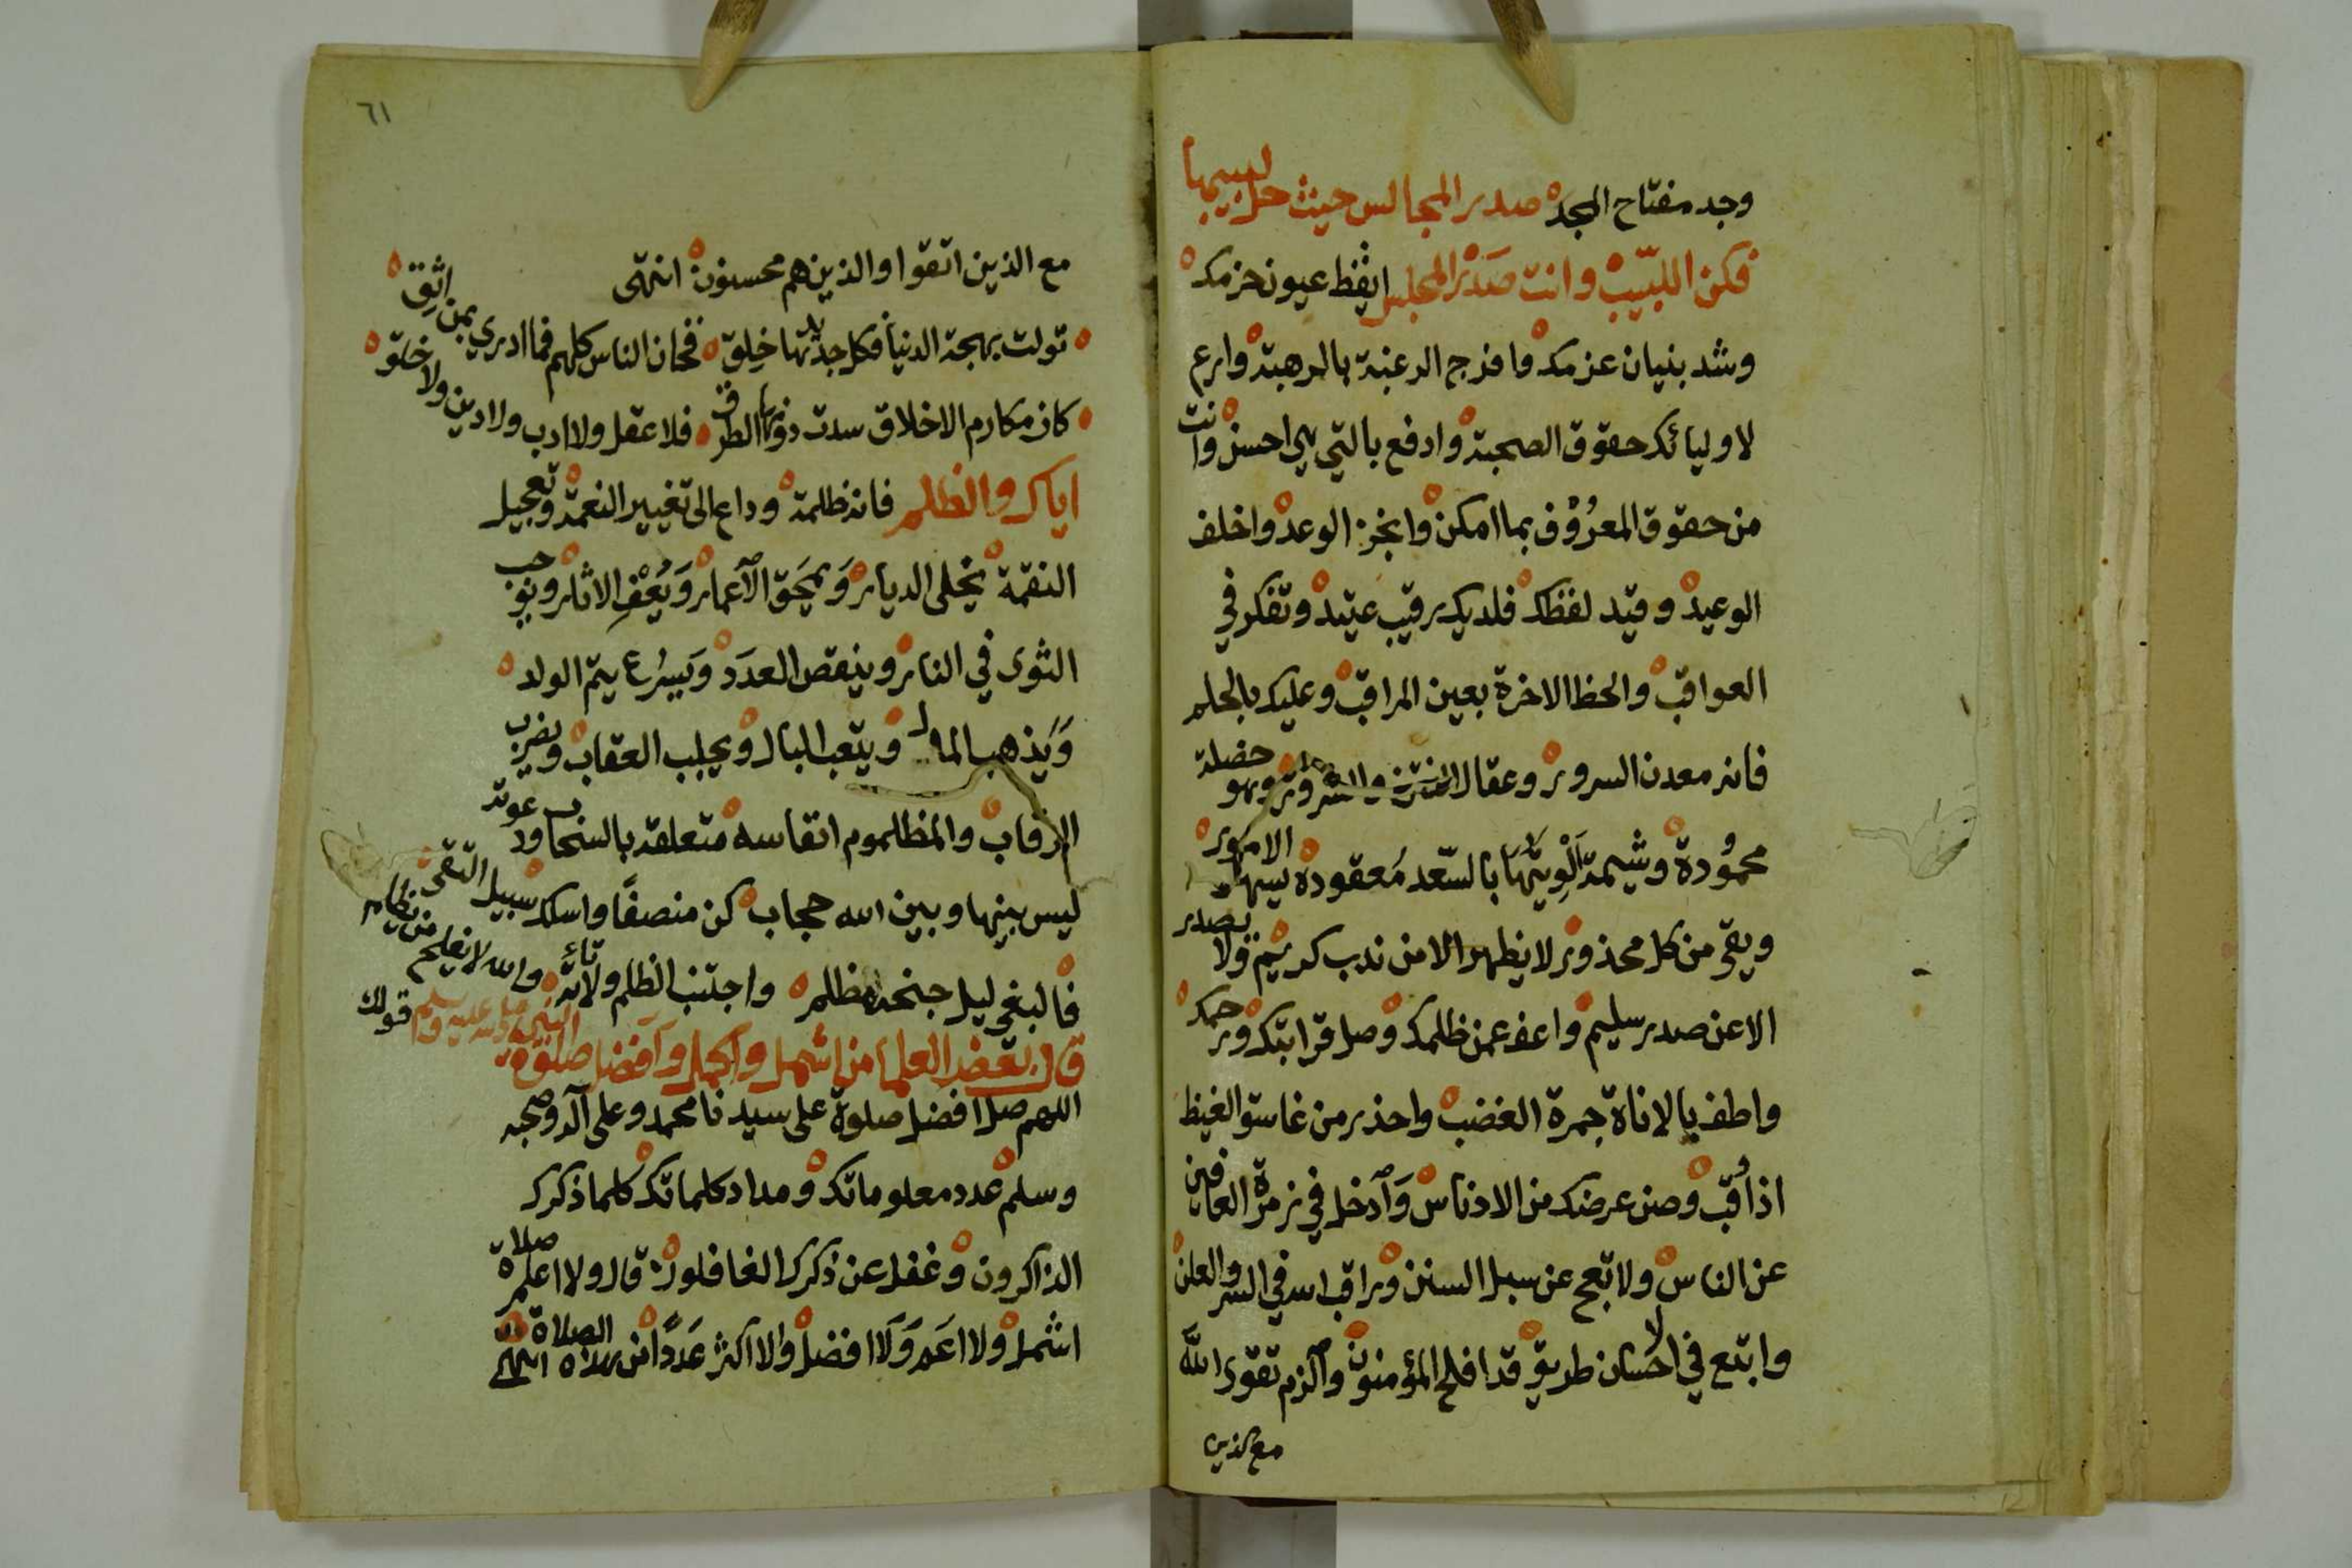 وجد مفتاح المجد صدر المجالس حيث حل لبيبها
فكن اللبيب وانت صدر المجلس ايقظ عيون حزمك
وشد بنيان عزمك وامزج الرغبة بالرهبة وارع
لاوليائك حقوق الصحبة وادفع بالتي هي احسن وانت
من حقوق المعروف بما امكن وانجز الوعد واخلف
الوعيد وقيد لفظك فلديك رقيب عتيد وتفكر في
العواقب والحظ الاخرة بعين المراقب وعليك بالحلم
فانه معدن السرور وعقال الفتن والشرور وهو خصلة
محمودة وشيمة الويتها بالسعد معقودة يسهل الامور
ويقي من كل محذور لا يظهر الا من ندب كريم ولا يصدر
الا عن صدر سليم واعف عمن ظلمك وصل قرابتك ورحمك
واطف بالاناة جمرة الغضب واحذر من غاسق الغيظ
اذا وقب وصن عرضك من الادناس وادخل في زمرة العافين
عن الناس ولا تعج عن سبل السنن وراقب الله في السر والعلن
واتبع في الاحسان طريق قد افلح المؤمنون والزم تقوى الله
مع الذين
٦١
مع الذين اتقوا والذين هم محسنون انتهى
تولت بهجة الدنيا فكل جديدها خلق فخان الناس كلهم فما ادري بمن اثق
كان مكارم الاخلاق سدت دونها الطرق فلا عقل ولا ادب ولا دين ولا خلق
اياك والظلم فانه ظلمة وداع الى تغيير النعمة وتعجيل
النقمة يخلى الديار ويمحق الاعمار ويعف الاثار ويوجب
الثوى في النار وينقص العدد ويسرع يتم الولد
ويذهب المال ويتعب البال ويجلب العقاب ويضرب
الرقاب والمظلوم انفاسه متعلقة بالسحاب ودعوته
ليس بينها وبين الله حجاب كن منصفا واسلك سبيل التقى
فالبغي ليل جنحه مظلم واجتنب الظلم ولا تأته والله لا يفلح من يظلم
قال بعض العلما من اشمل واكمل وافضل صلوة النبي صلى الله عليه وسلم قولك
اللهم صل افضل صلوة على سيدنا محمد وعلى آله وصحبه
وسلم عدد معلوماتك ومداد كلماتك كلما ذكرك
الذاكرون وغفل عن ذكرك الغافلون قال ولا اعلم صلاة
اشمل ولا اعم ولا افضل ولا اكثر عددا من هذه الصلاة انتهى